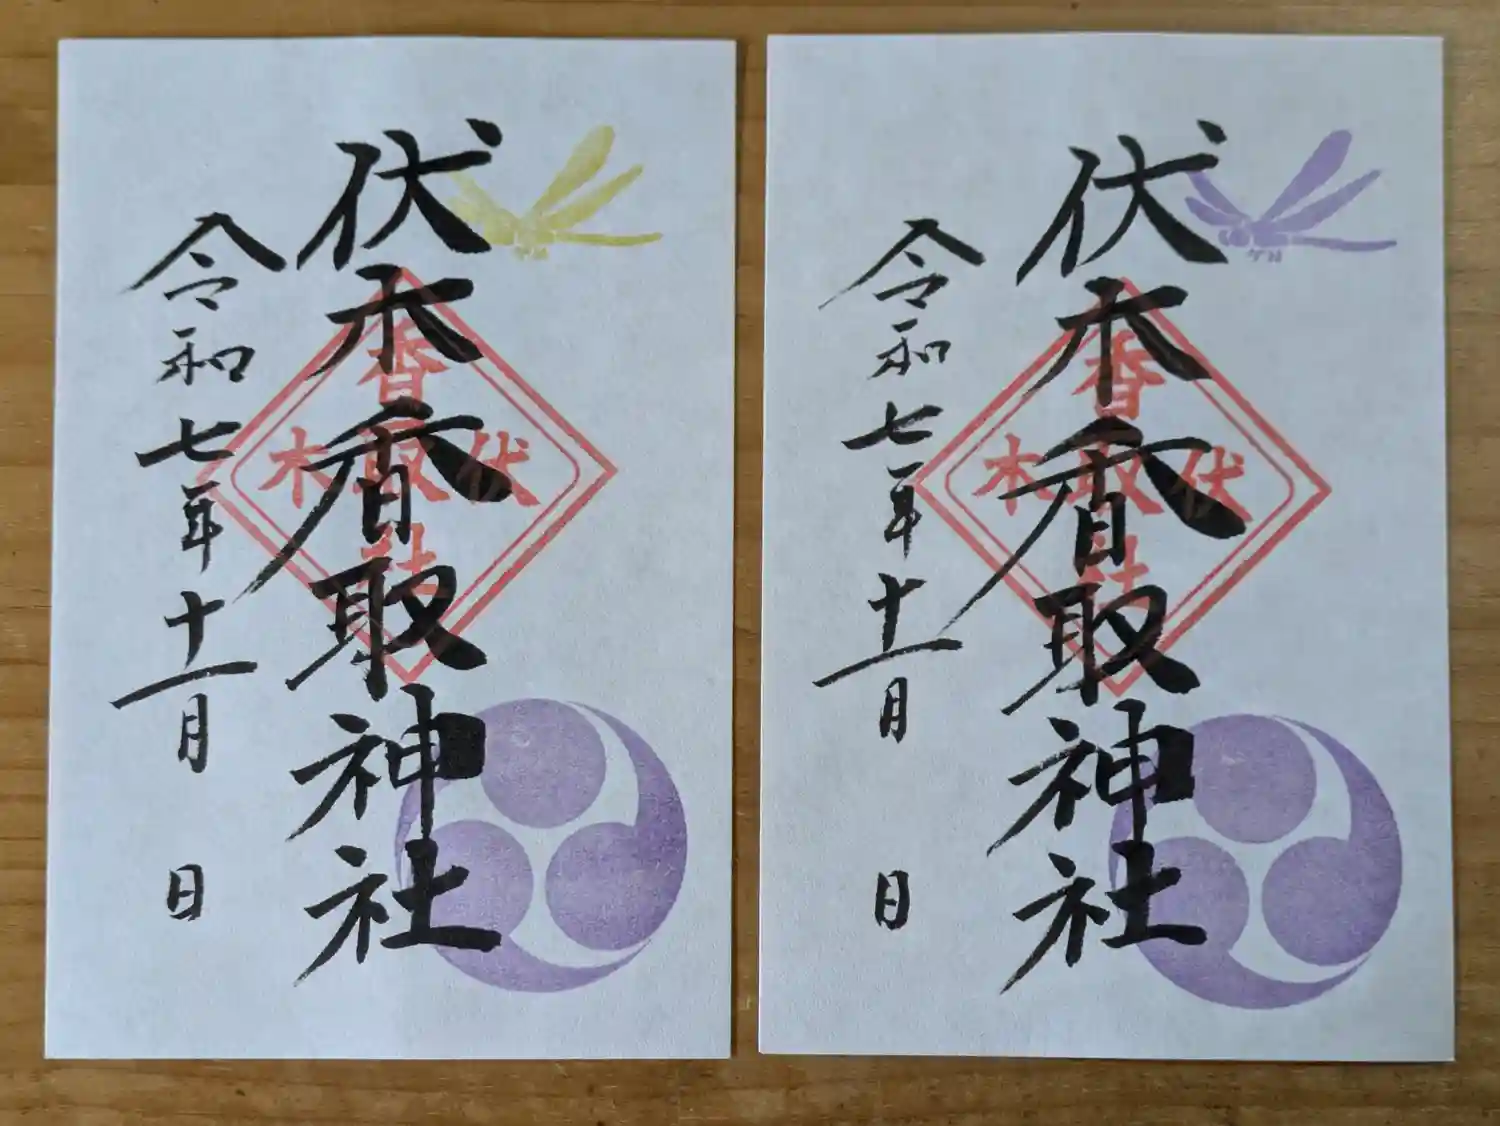 伏木香取神社
令和七年十一月　日
香取社
伏木
伏木香取神社
令和七年十一月　日
香取社
伏木